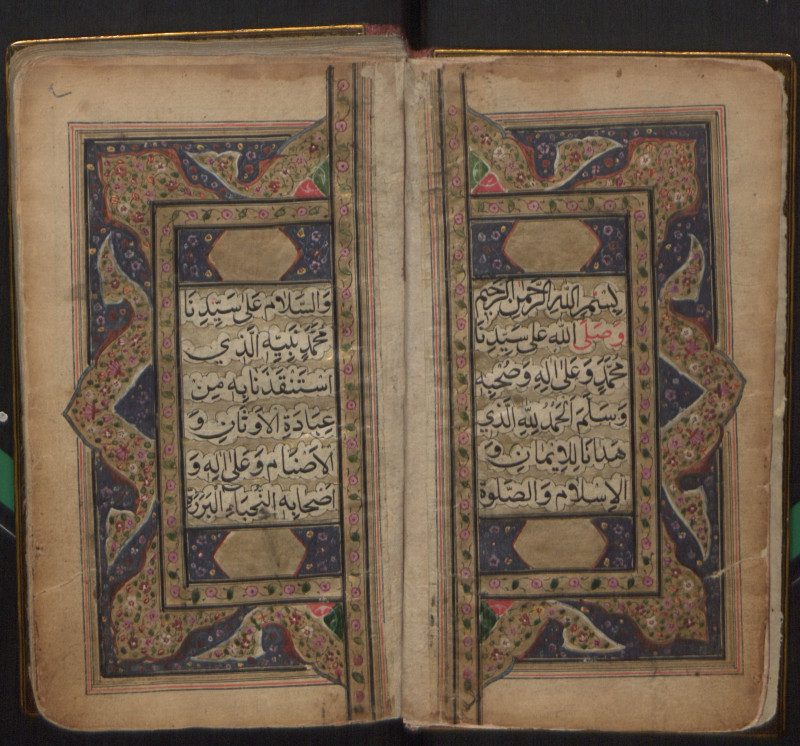 بِسْمِ اللهِ الرَّحْمٰنِ الرَّحِيمِ
وَصَلَّى اللهُ عَلَى سَيِّدِنَا
مُحَمَّدٍ وَعَلَى اٰلِهِ وَصَحْبِهِ
وَسَلَّمَ اَلْحَمْدُ لِلّٰهِ الَّذِي
هَدَانَا لِلْاِيمَانِ وَ
الْاِسْلَامِ وَالصَّلٰوةُ
وَالسَّلَامُ عَلَى سَيِّدِنَا
مُحَمَّدٍ نَبِيِّهِ الَّذِي
اسْتَنْقَذَنَا بِهِ مِنْ
عِبَادَةِ الْاَوْثَانِ وَ
الْاَصْنَامِ وَعَلَى اٰلِهِ وَ
اَصْحَابِهِ النُّجَبَاءِ الْبَرَرَةِ